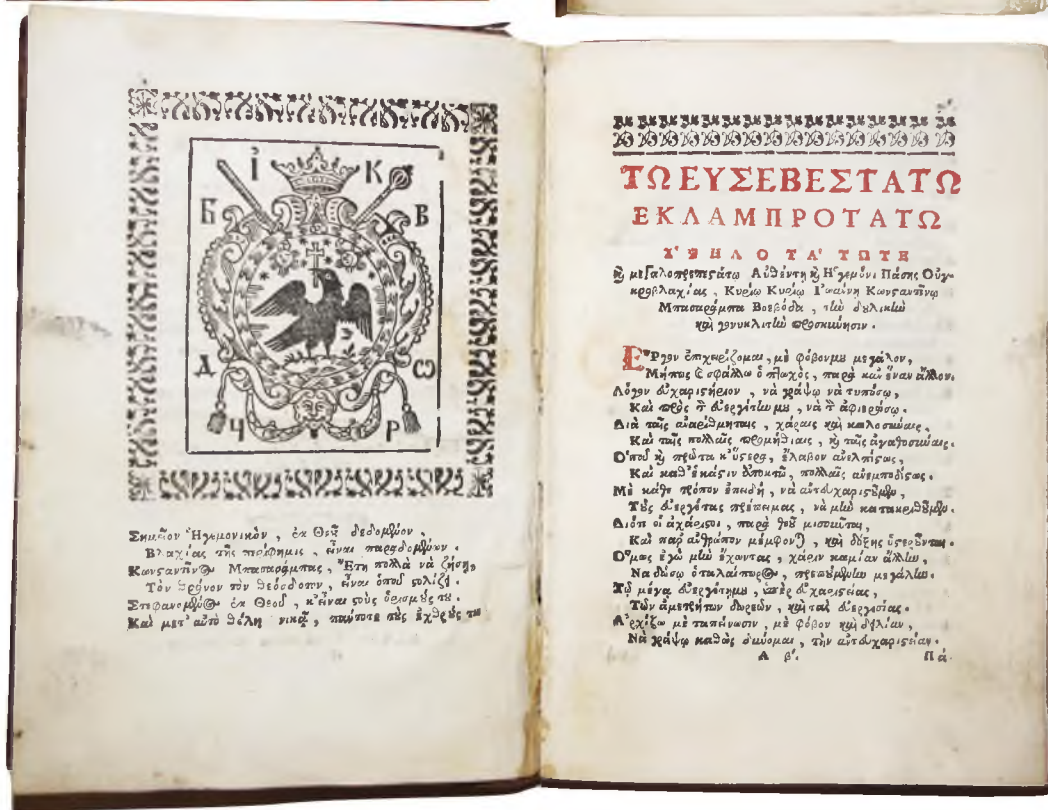 Ἰ Κ
Б В
Д Ѡ
Ч Р
Σημεῖον Ἡγεμονικὸν, ἐκ Θεοῦ δεδομένον,
Βλαχίας τῆς εἶναι παραδομένον.
Κωνσταντῖνος Μπασαράμπας, Ἔτη πολλὰ νὰ ζήσῃ,
Τὸν θρόνον τὸν θεόσδοτον, εἶναι ὁποῦ στολίζει.
Στεφανομένος ἐκ Θεοῦ, κ' εἶναι τοὺς ὁρισμούς του.
Καὶ μετ' αὐτὸ θέλῃ νικᾷ, πάντοτε τοὺς ἐχθρούς του
ΤΩ ΕΥΣΕΒΕΣΤΑΤΩ
ΕΚΛΑΜΠΡΟΤΑΤΩ
Υ'ΨΗΛΟΤΑ'ΤΩ ΤΕ
καὶ μεγαλοπρεπεστάτω Αὐθέντῃ καὶ Ἡγεμόνι Πάσης Οὐγ-
κροβλαχίας, Κυρίω Κυρίῳ Ἰωάννῃ Κωνσταντίνῳ
Μπασαράμπα Βοεβόδα, τὴν δουλικὴν
καὶ γονυκλιτὴν προσκύνησιν.
ΕΡγον ἐπιχειρίζομαι, μὲ φόβον μου μεγάλον,
Μήπως καὶ σφάλλω ὁ πτωχὸς, παρὰ καν ἕναν ἄλλον.
Λόγον εὐχαριστήριον, νὰ γράψω νὰ τυπόσω,
Καὶ πρὸς τὸν εὐεργέτην μου, νὰ τὸν ἀφιερόσω.
Διὰ ταῖς ἀναρίθμηταις, χάραις καὶ καλοσύναις,
Καὶ ταῖς πολλαῖς προμήθιαις, καὶ ταῖς ἀγαθοσύναις.
Ὁποῦ καὶ πρῶτα κ' ὕστερα, ἔλαβον ἀνελπίστως,
Καὶ καθ' ἑκάστιν ἀποκτῶ, πολλαῖς ἀνεμποδίστως.
Μὲ κάθε τρόπον ἐπειδὴ, νὰ αὐτευχαριστοῦμεν,
Τοὺς εὐεργέτας πρέπει μας, νὰ μὴν κατακριθοῦμεν.
Διότι οἱ ἀχάριστοι, παρὰ θεοῦ μισοῦνται,
Καὶ παρ' ἀνθρώπων μέμφονται, καὶ δόξης ὑστεροῦνται.
Ὅμως ἐγὼ μὴν ἔχωντας, χάριν καμίαν ἄλλην,
Νὰ δώσω ὁ ταλαίπωρος, πρεπουμένην μεγάλην.
Τῷ μέγα εὐεργέτῃ μου, ὑπὲρ εὐχαριστείας,
Τῶν ἀμετρήτων δωρεῶν, καὶ ταῖς εὐεργεσίας.
Ἀρχίζω μὲ ταπείνωσιν, μὲ φόβον καὶ δειλίαν,
Νὰ γράψω καθὼς δύνομαι, τὴν αὐτευχαριστείαν.
Α β'. Πά